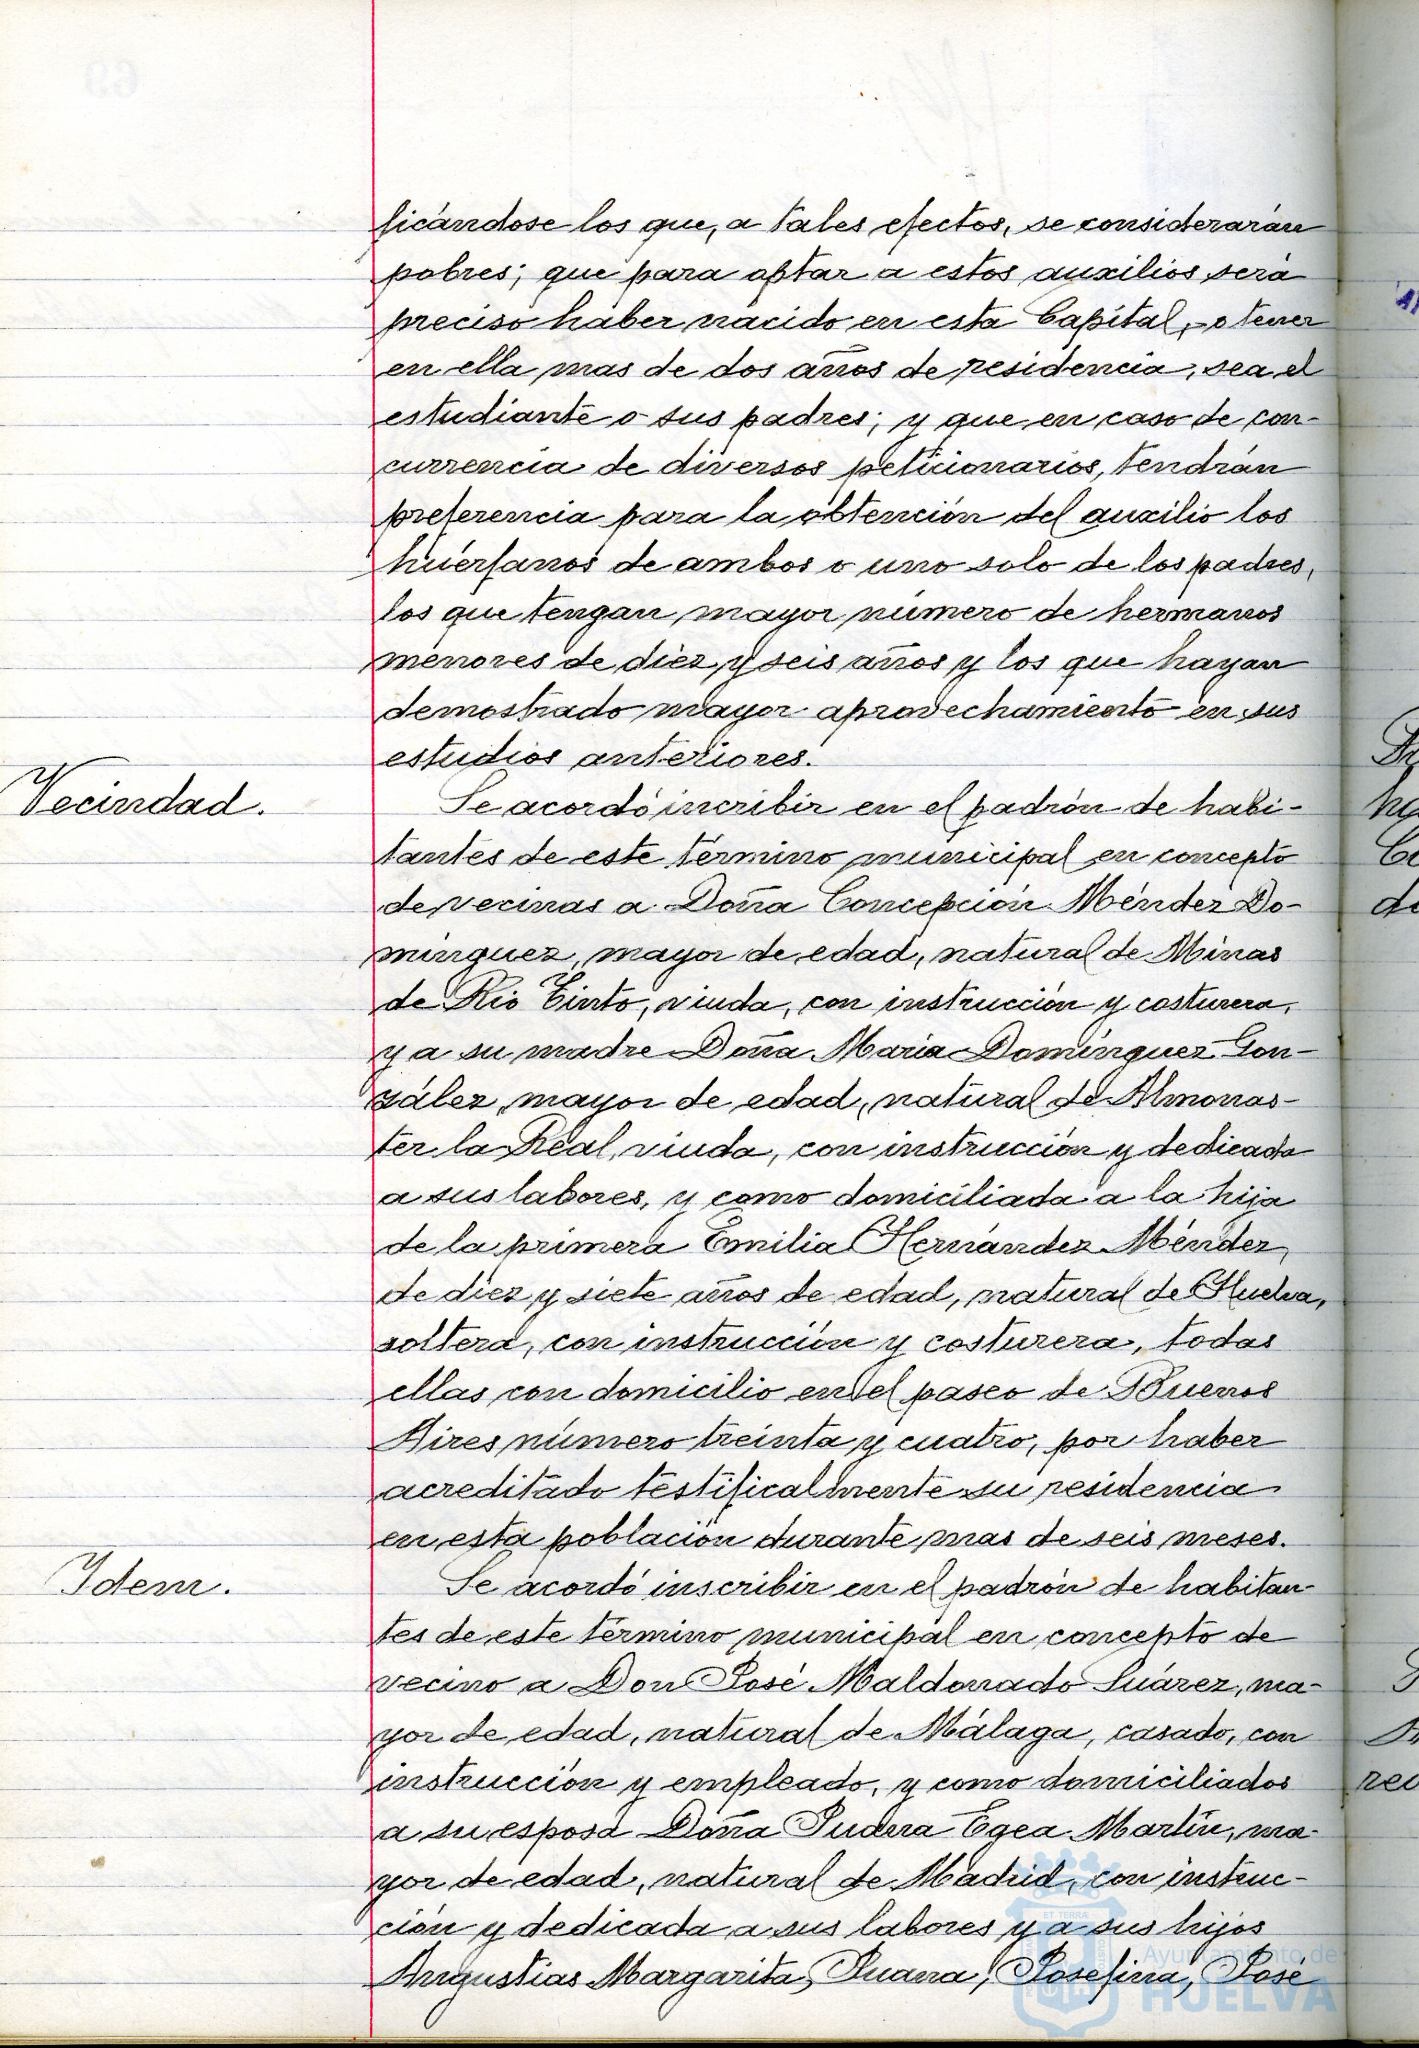 ficándose los que, a tales efectos, se considerarán
pobres; que para optar a estos auxilios será
preciso haber nacido en esta Capital, o tener
en ella mas de dos años de residencia, sea el
estudiante o sus padres; y que en caso de con-
currencia de diversos peticionarios, tendrán
preferencia para la obtención del auxilio los
huérfanos de ambos o uno solo de los padres,
los que tengan mayor número de hermanos
menores de diez y seis años y los que hayan
demostrado mayor aprovechamiento en sus
estudios anteriores.
Vecindad.
Se acordó incribir en el padrón de habi-
tantes de este término municipal en concepto
de vecinas a Doña Concepción Méndez Do-
minguez, mayor de edad, natural de Minas
de Rio Tinto, viuda, con instrucción y costurera,
y a su madre Doña Maria Domínguez Gon-
zález, mayor de edad, natural de Almonas-
ter la Real, viuda, con instrucción y dedicada
a sus labores, y como domiciliada a la hija
de la primera Emilia Hernández Méndez,
de diez y siete años de edad, natural de Huelva,
soltera, con instrucción y costurera, todas
ellas con domicilio en el paseo de Buenos
Aires número treinta y cuatro, por haber
acreditado testificalmente su residencia
en esta población durante mas de seis meses.
Idem.
Se acordó inscribir en el padrón de habitan-
tes de este término municipal en concepto de
vecino a Don José Maldonado Suárez, ma-
yor de edad, natural de Málaga, casado, con
instrucción y empleado, y como domiciliados
a su esposa Doña Juana Egea Martín, ma-
yor de edad, natural de Madrid, con instruc-
ción y dedicada a sus labores y a sus hijos
Angustias Margarita, Juana, Josefina, José
ET TERRÆ
Ayuntamiento de
HUELVA